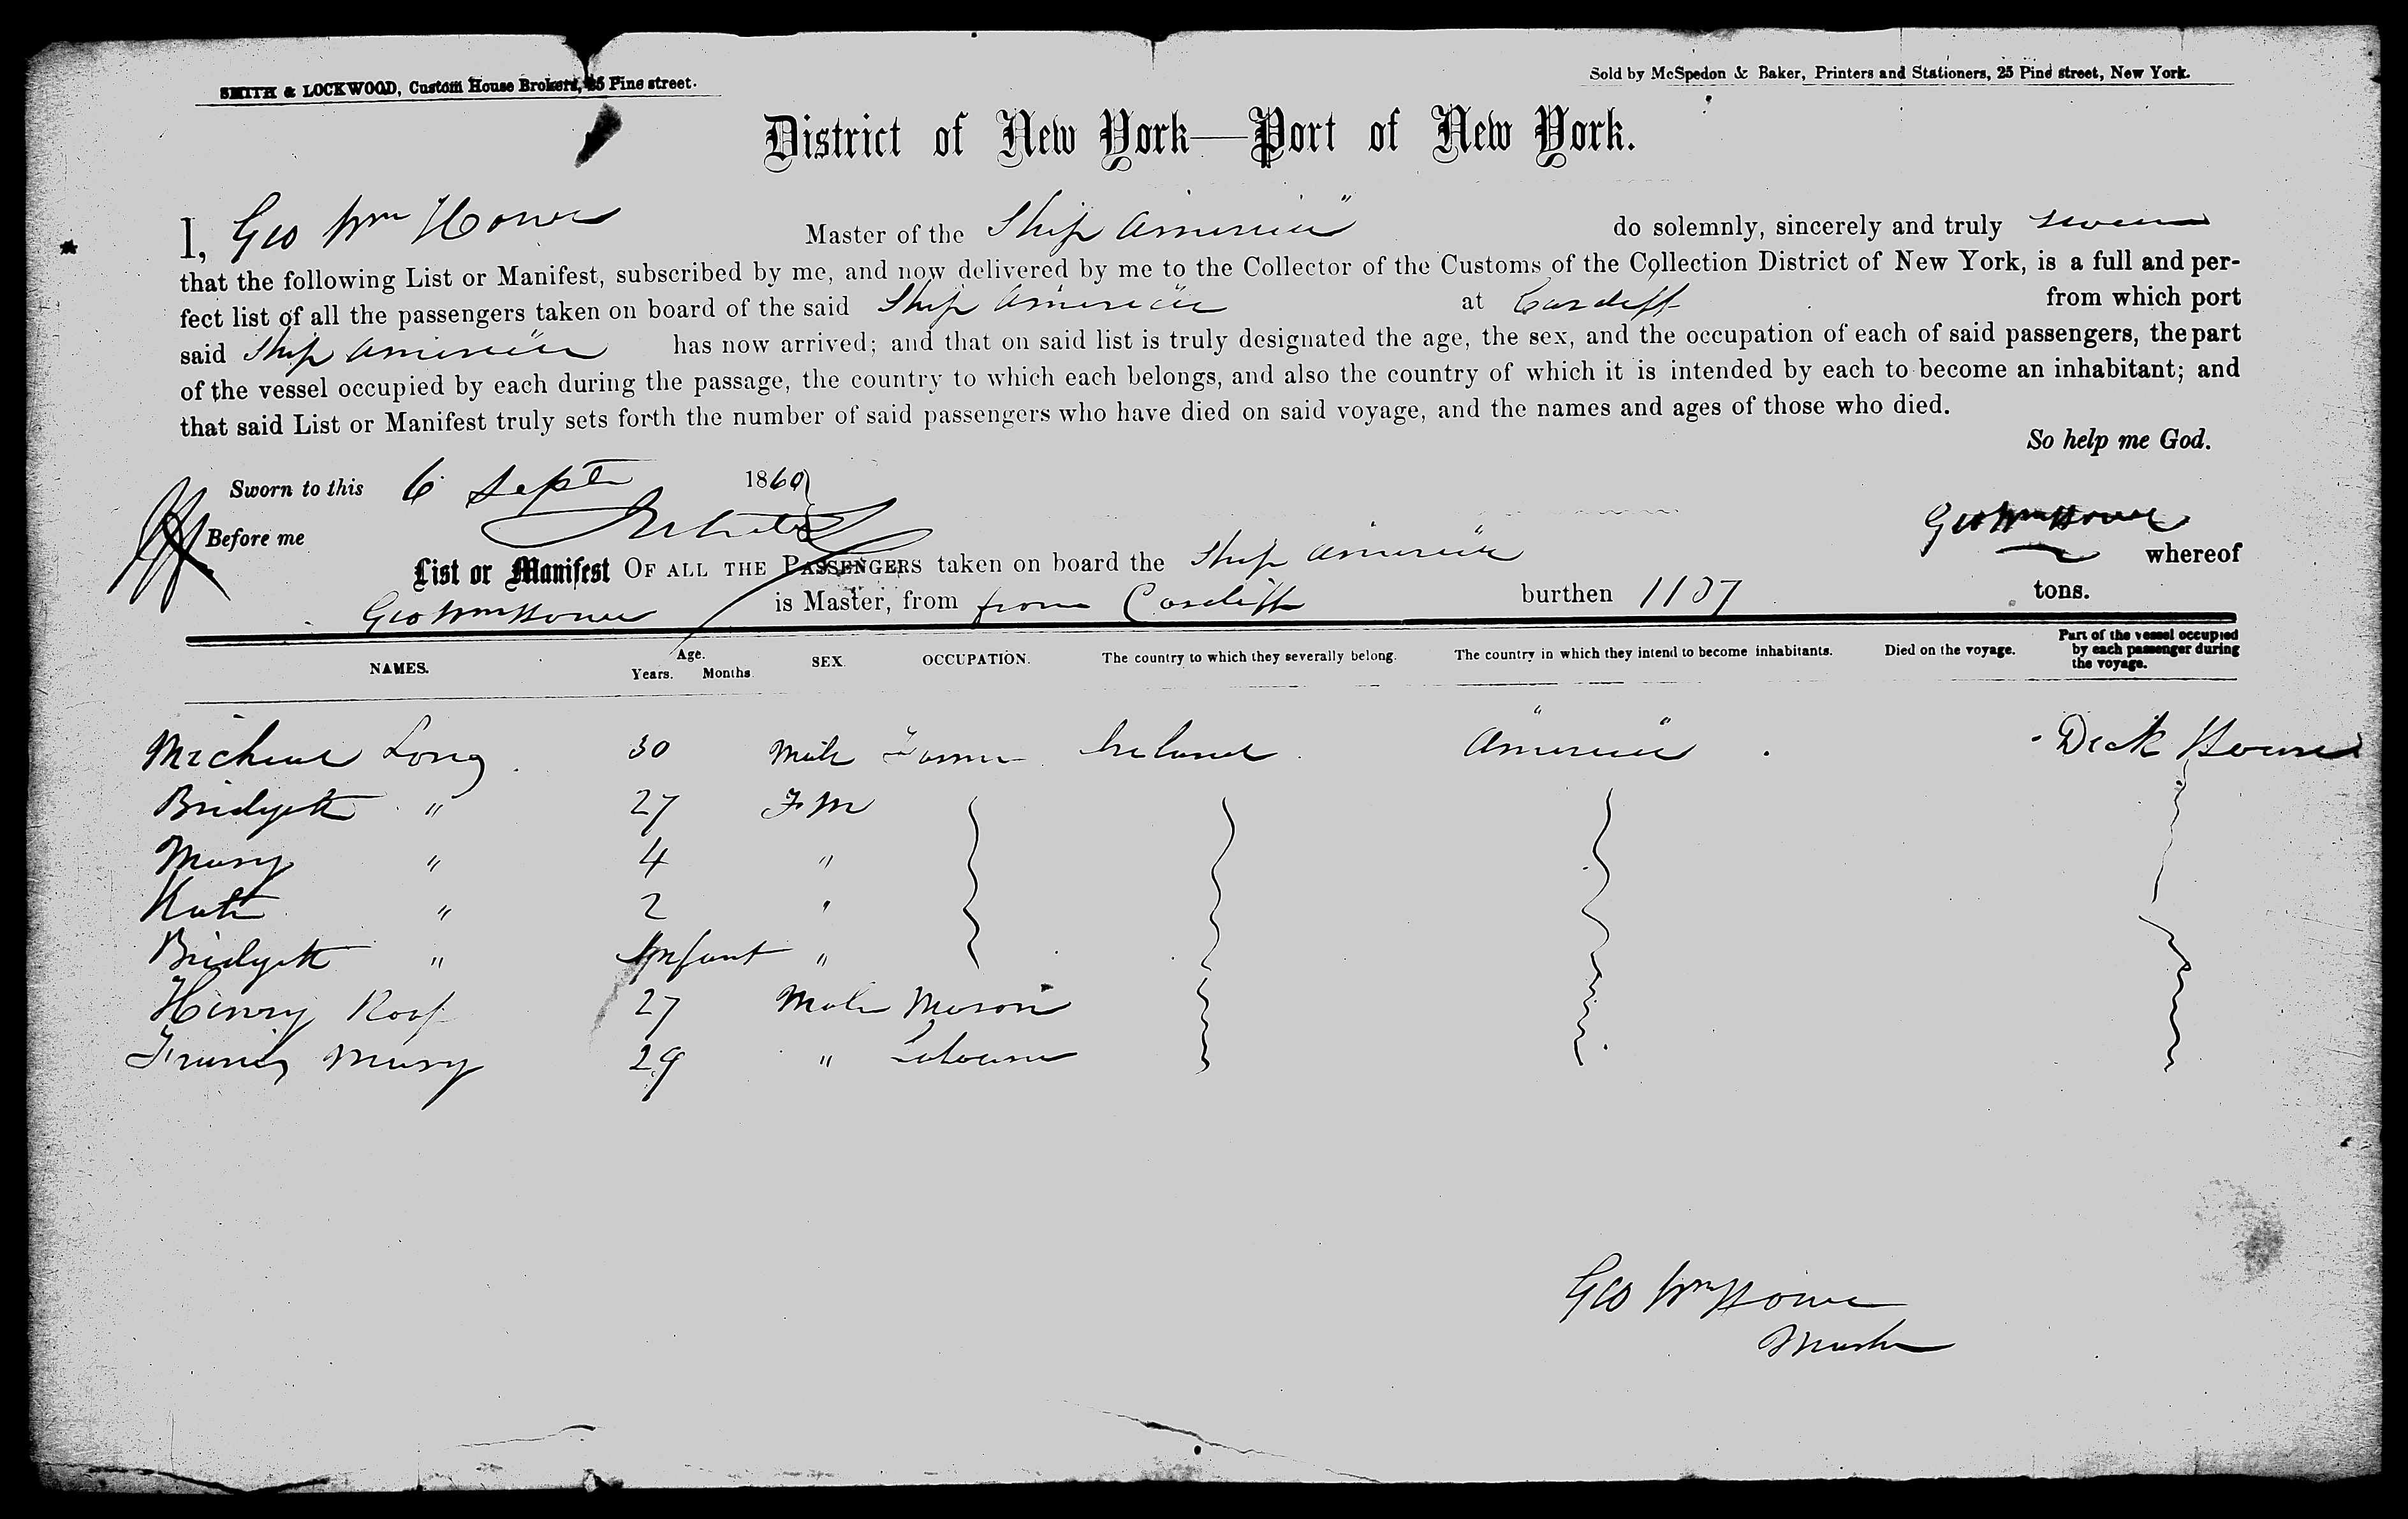 SMITH & LOCKWOOD, Custom House Brokers, 25 Pine street.
Sold by McSpedon & Baker, Printers and Stationers, 25 Pine street, New York.
District of New York—Port of New York.
I, Geo Wm Howe Master of the Ship "America" do solemnly, sincerely and truly swear
that the following List or Manifest, subscribed by me, and now delivered by me to the Collector of the Customs of the Collection District of New York, is a full and per-
fect list of all the passengers taken on board of the said Ship America at Cardiff from which port
said Ship America has now arrived; and that on said list is truly designated the age, the sex, and the occupation of each of said passengers, the part
of the vessel occupied by each during the passage, the country to which each belongs, and also the country of which it is intended by each to become an inhabitant; and
that said List or Manifest truly sets forth the number of said passengers who have died on said voyage, and the names and ages of those who died.
So help me God.
Sworn to this 6 Sept 1860
Before me
Geo Wm Howe
List or Manifest OF ALL THE PASSENGERS taken on board the Ship America whereof
Geo Wm Howe is Master, from from Cardiff burthen 1137 tons.
NAMES. Age. Years. Months. SEX. OCCUPATION. The country to which they severally belong. The country in which they intend to become inhabitants. Died on the voyage. Part of the vessel occupied by each passenger during the voyage.
Micheal Long 30 Male Farmer Ireland "America" Deck House
Bridgett " 27 FM
Mary " 4 "
Kate " 2 "
Bridgett " Infant "
Henry Roof 27 Male Mason
Francis Mury 29 " Laborer
Geo Wm Howe
Master